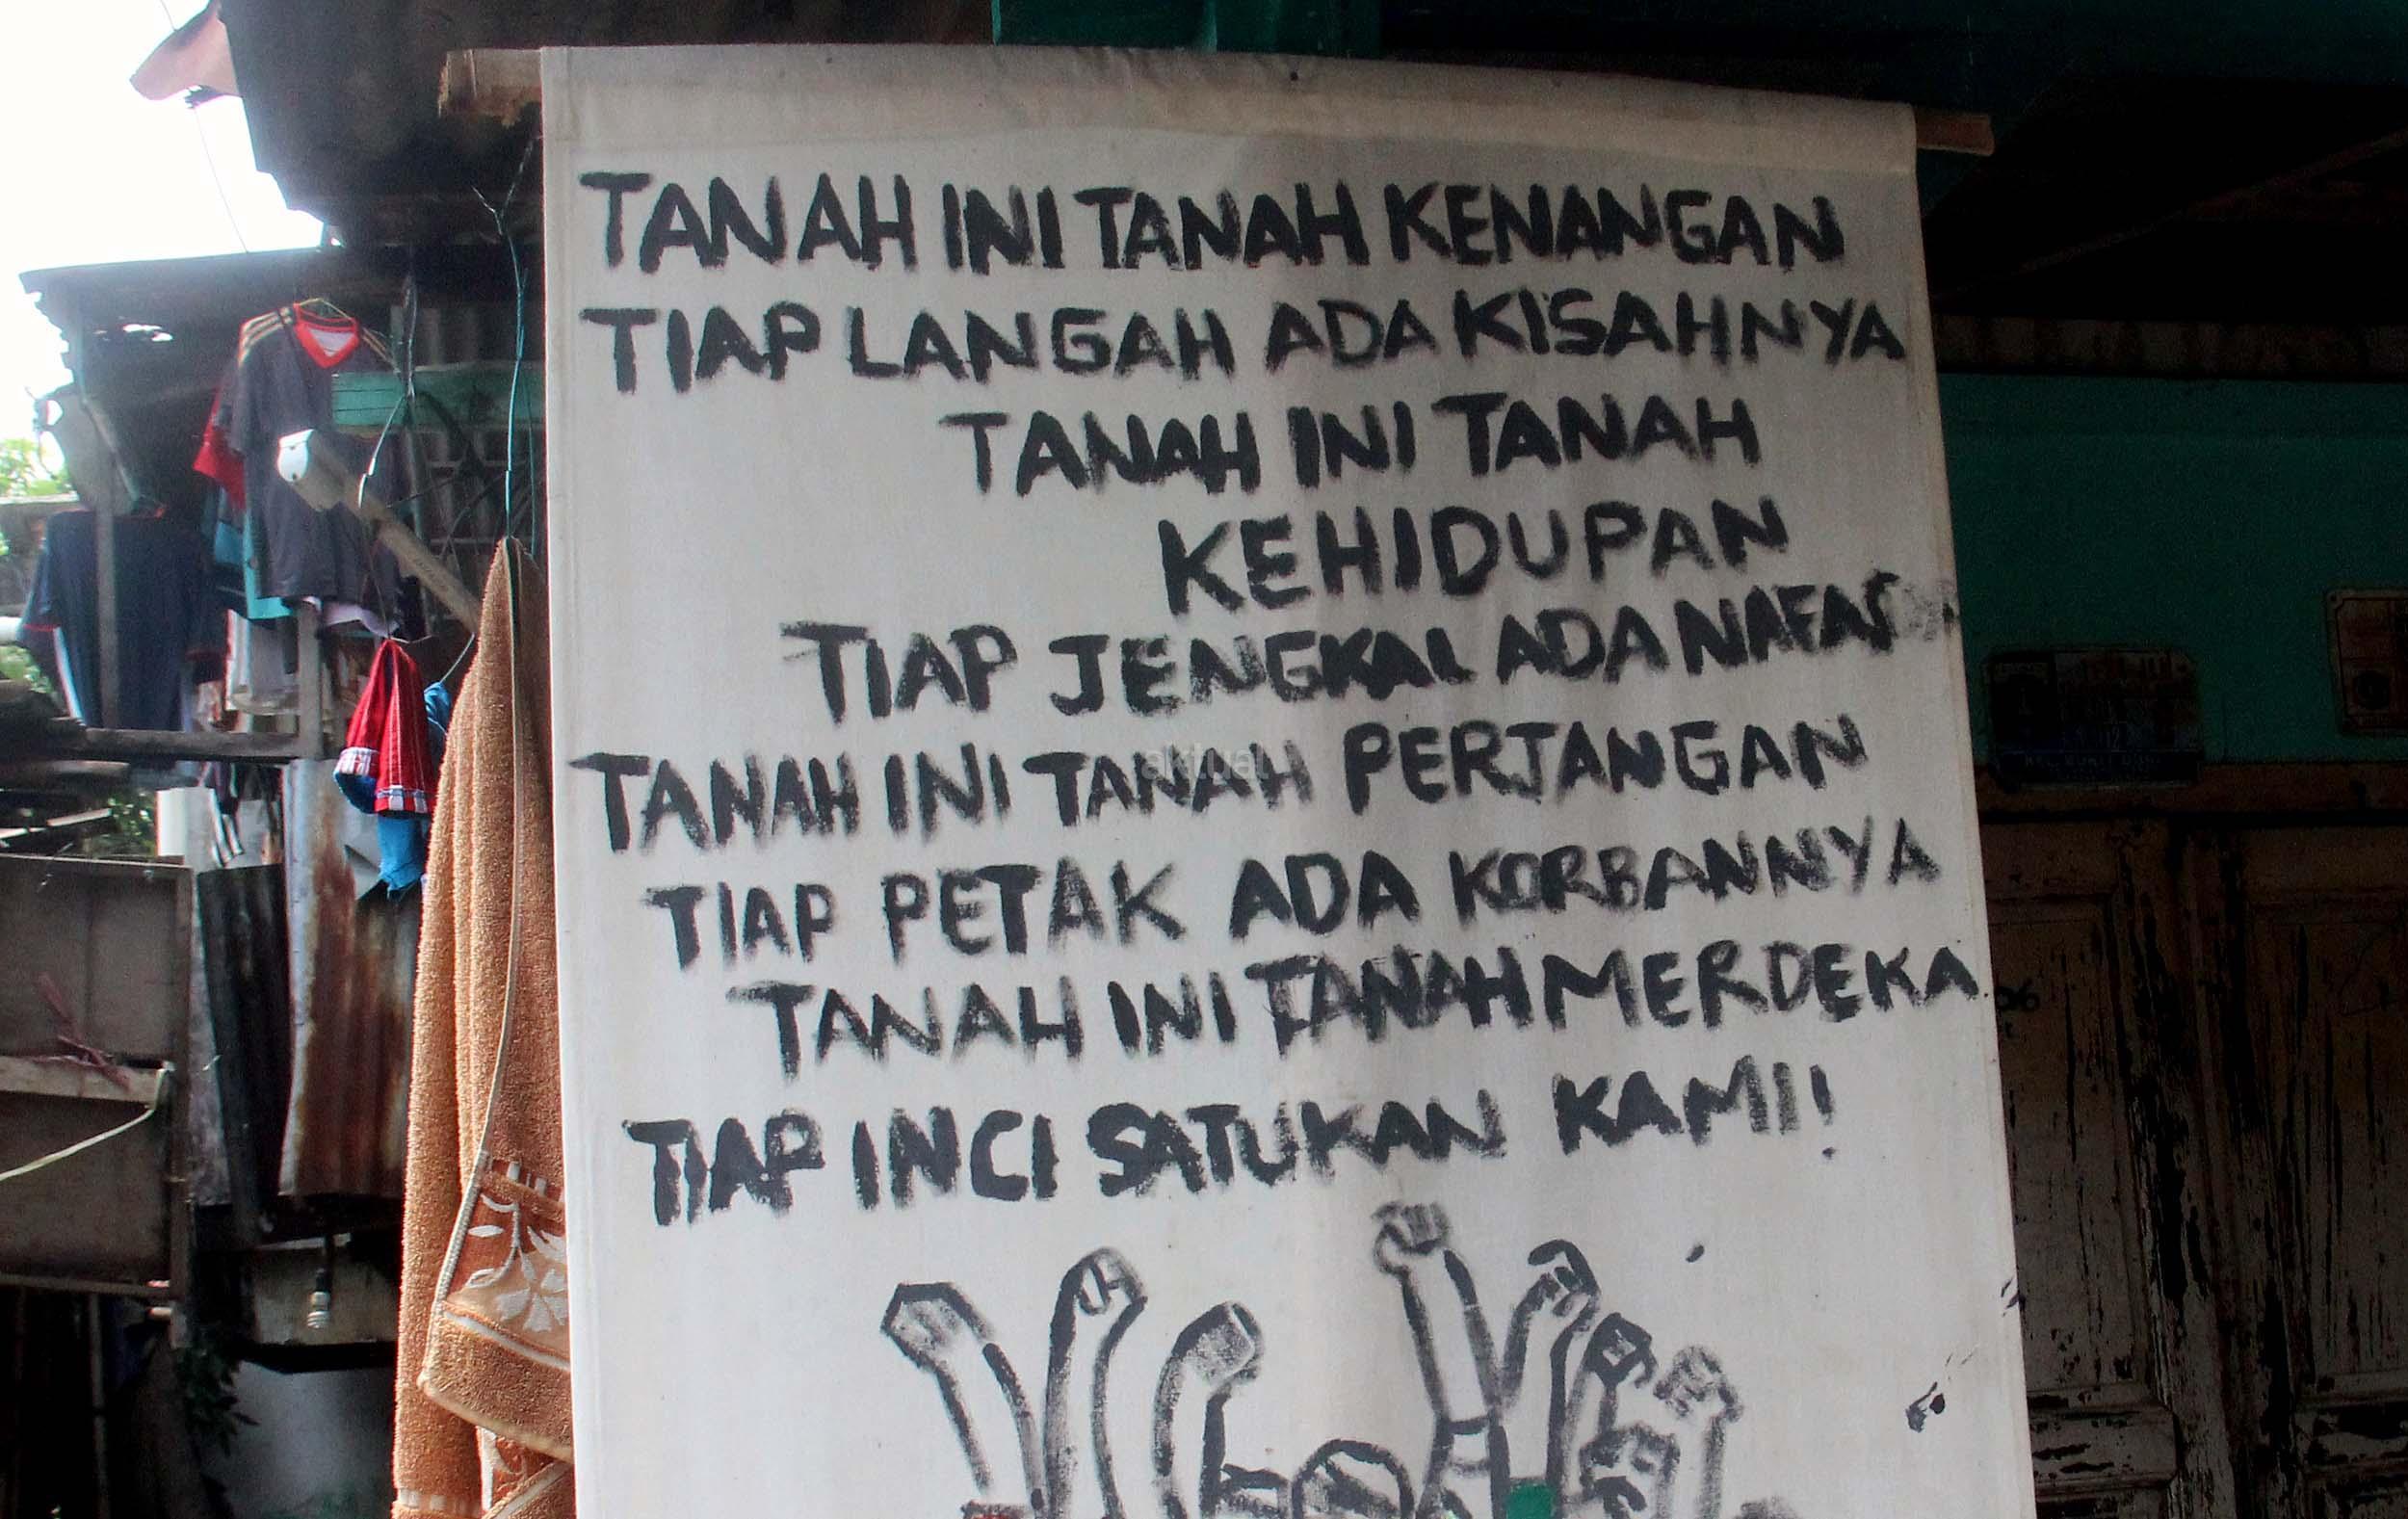 TANAH INI TANAH KENANGAN
TIAP LANGAH ADA KISAHNYA
TANAH INI TANAH
KEHIDUPAN
TIAP JENGKAL ADA NAFAS
TANAH INI TANAH PERJANGAN
aktual
TIAP PETAK ADA KORBANNYA
TANAH INI TANAH MERDEKA
TIAP INCI SATUKAN KAMI!